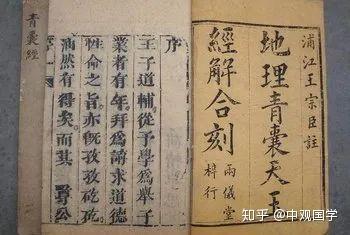 浦江王宗臣註
地理青囊天玉
經解合刻
兩儀堂
梓行
序
王子道輔從予學爲舉子
業者有年拜爲請求道德
性命之旨亦旣孜孜矻矻
涵然有得矣而其賢公
青囊經
知乎 @中观国学